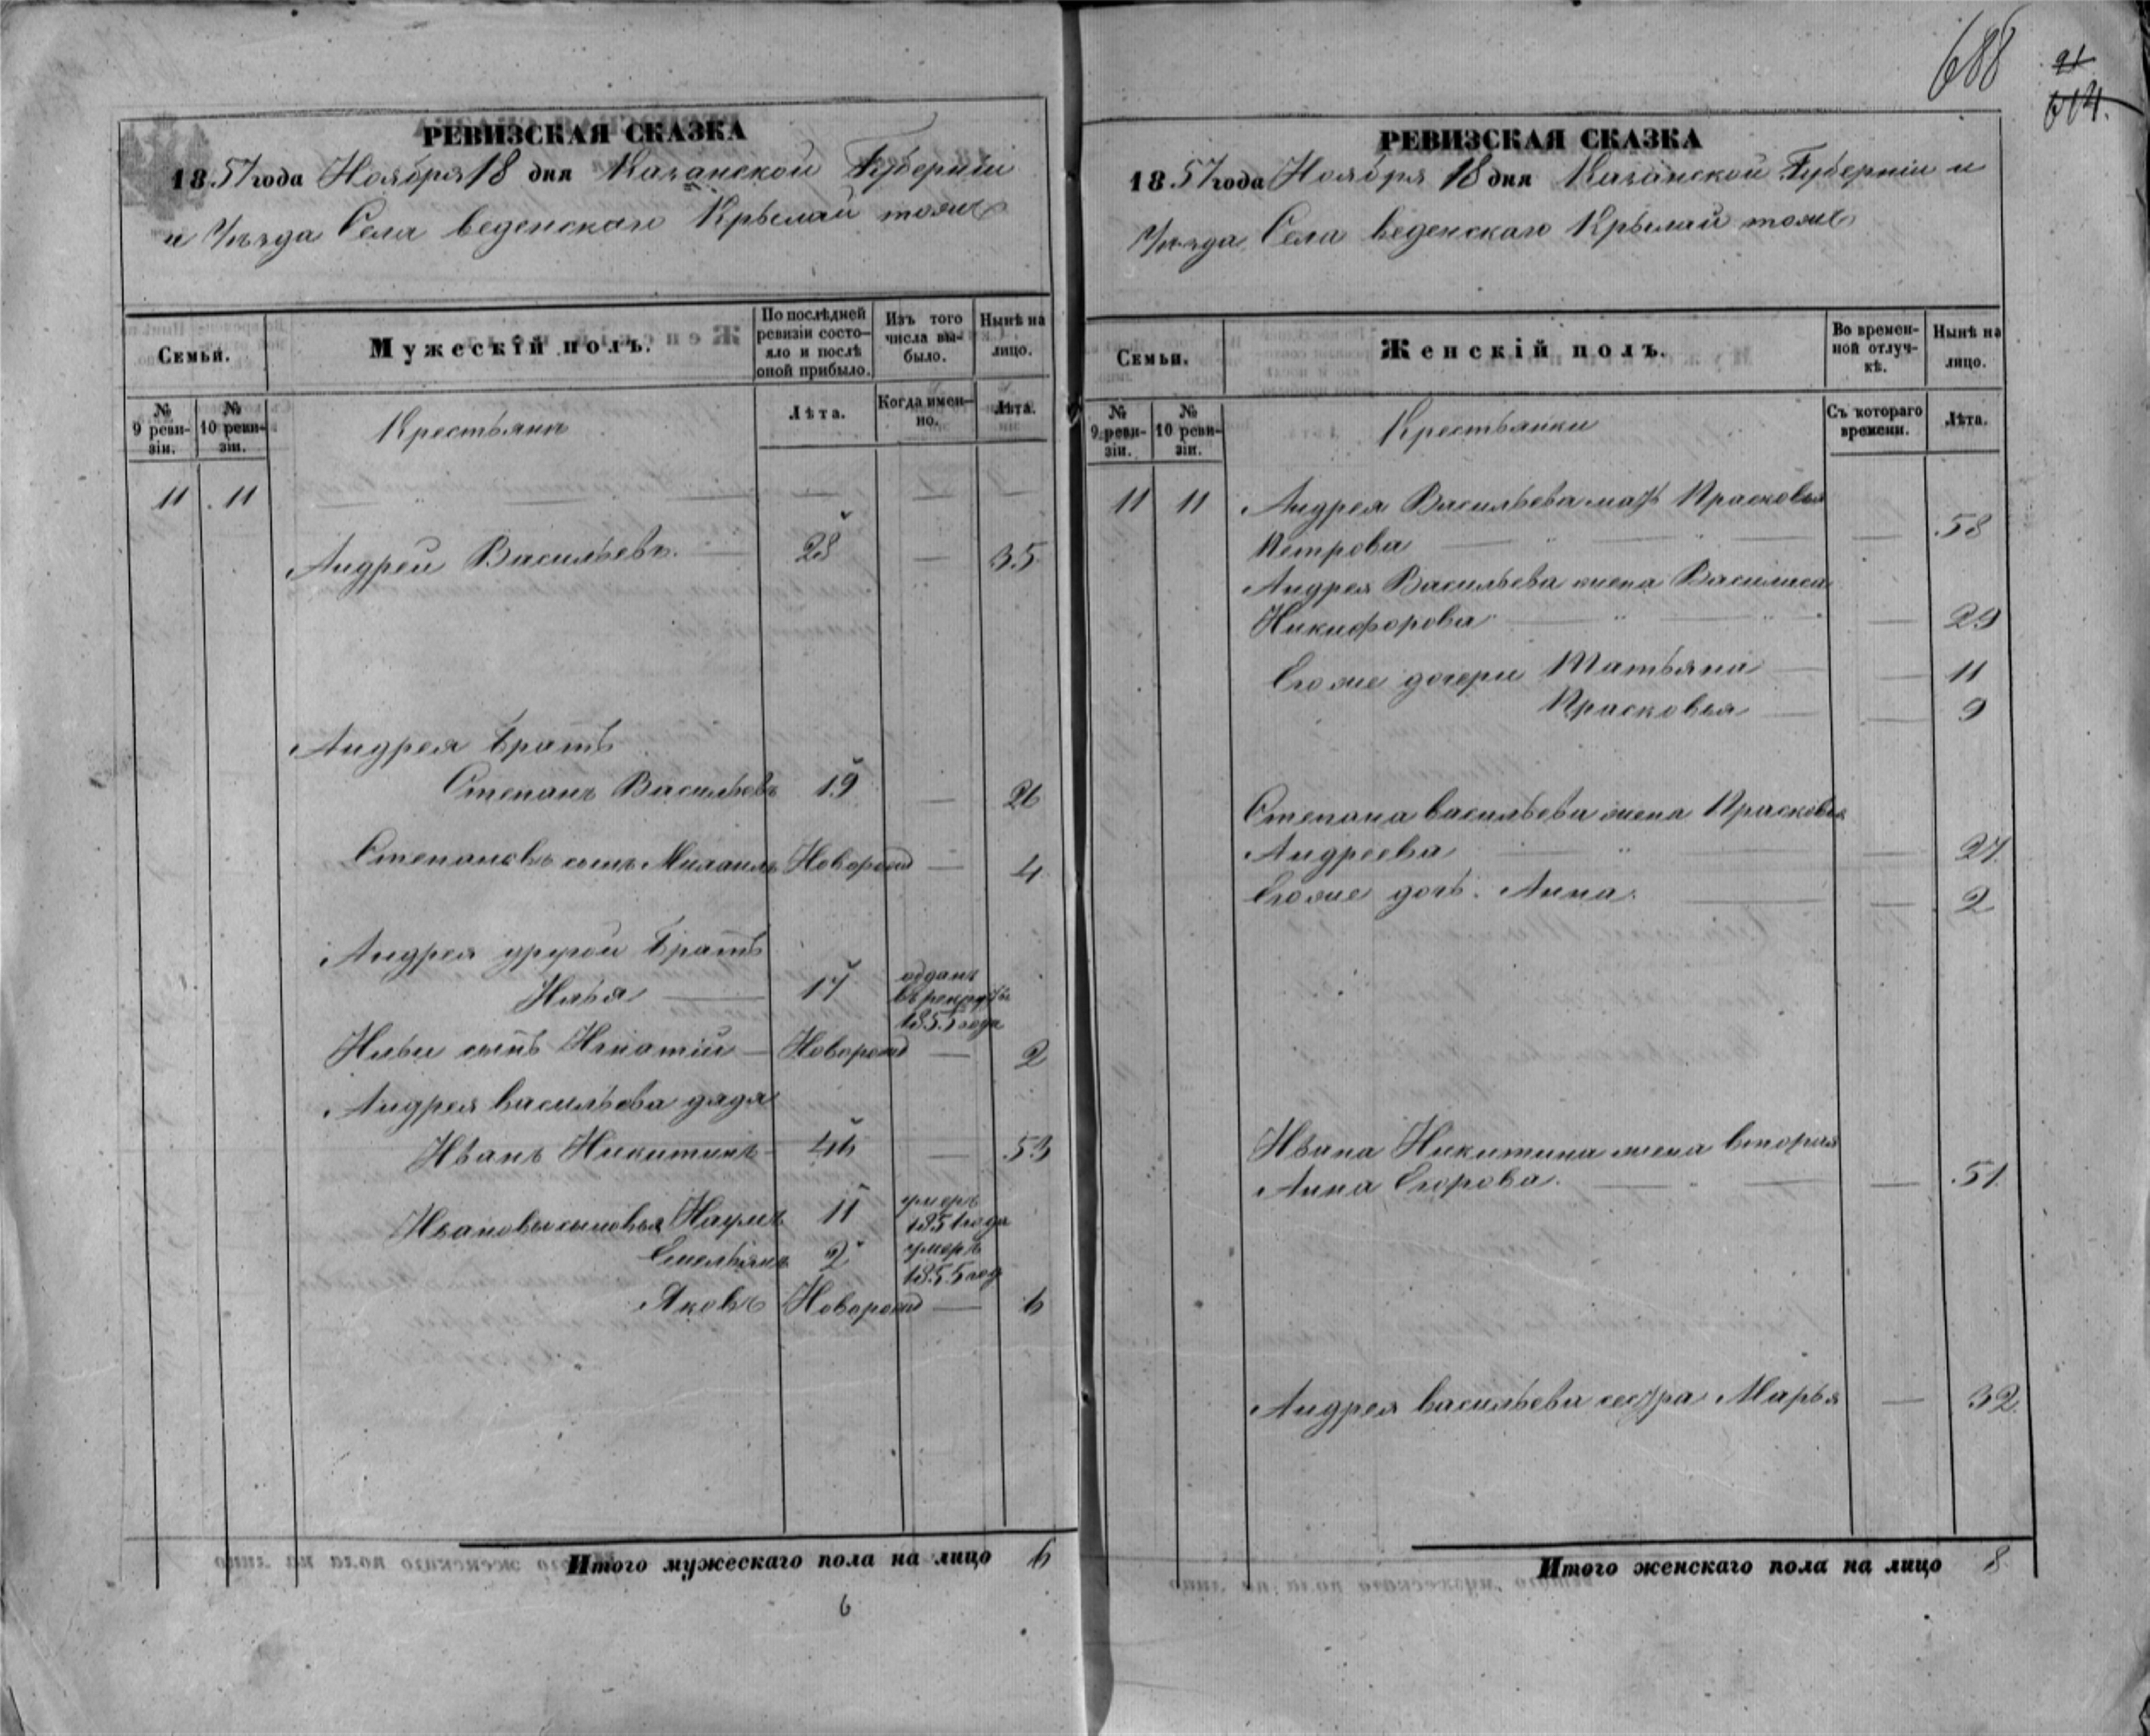 688
21
614.
РЕВИЗСКАЯ СКАЗКА
1857 года Ноября 18 дня Казанской Губерніи
и Уѣзда Села Веденскаго Крѣлай тожъ
Семьи.
Мужескій полъ.
По послѣдней ревизіи состо-
яло и послѣ
оной прибыло.
Изъ того
числа вы-
было.
Нынѣ на
лицо.
№
9 реви-
зіи.
№
10 реви-
зіи.
Крестьянъ
Лѣта.
Когда имен-
но.
Лѣта.
11 11
Андрей Васильевъ 28 — 35
Андрея братъ
Степанъ Васильевъ 19 — 26
Степановъ сынъ Михаилъ Новорожд — 4
Андрея другой братъ
Илья 17 оддан
въ рекруты
1855 года
Ильи сынъ Игнатій Новорожд — 2
Андрея Васильева дядя
Иванъ Никитинъ 46 — 53
Ивановы сыновья Наумъ 11 умеръ
1851 года
Емельянъ 2 умеръ
1855 год
Яковъ Новорожд — 6
Итого мужескаго пола на лицо 6
6
РЕВИЗСКАЯ СКАЗКА
1857 года Ноября 18 дня Казанской Губерніи и
Уѣзда Села Веденскаго Крѣлай тожъ
Семьи.
Женскій полъ.
Во времен-
ной отлуч-
кѣ.
Нынѣ на
лицо.
№
9 реви-
зіи.
№
10 реви-
зіи.
Крестьянки
Съ котораго
времени.
Лѣта.
11 11 Андрея Васильева мать Прасковья
Петрова — 58
Андрея Васильева жена Василиса
Никифорова — 29
Егоже дочери Татьяна — 11
Прасковья — 9
Степана Васильева жена Прасковья
Андреева — 27
Егоже дочь Анна — 2
Ивана Никитина жена вторая
Анна Егорова — 51
Андрея Васильева сестра Марья — 32
Итого женскаго пола на лицо 8